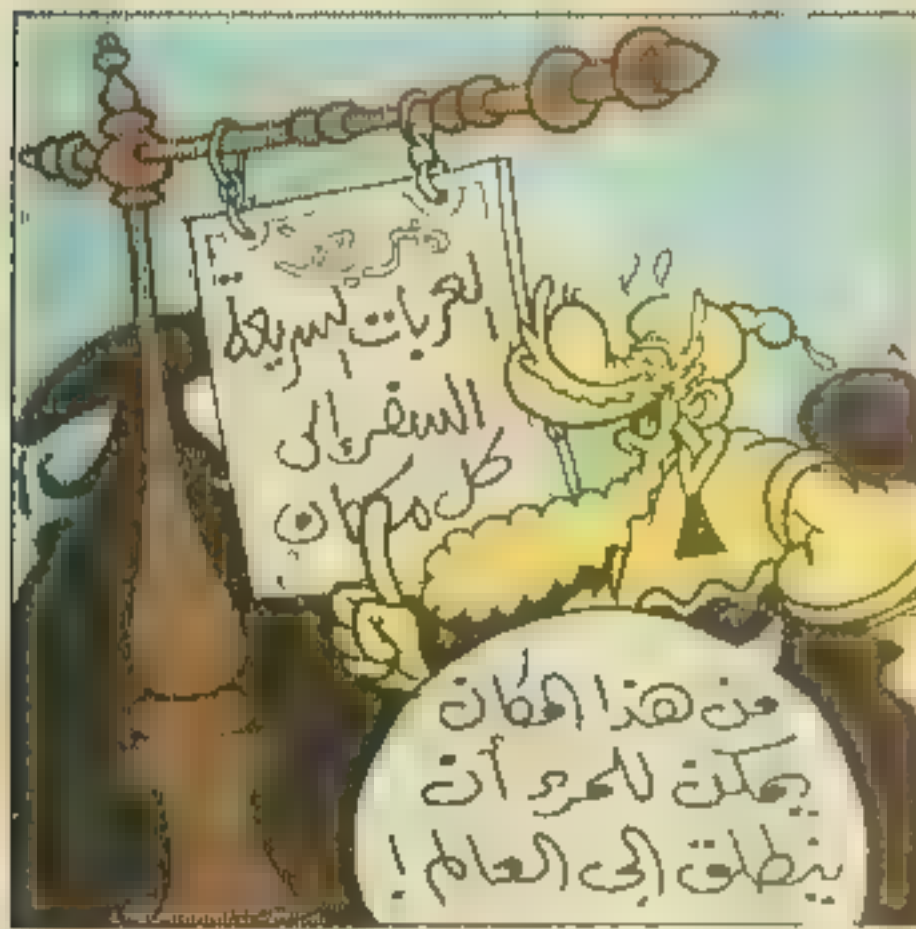 العربات السريعة
السفر إلى
كل مكان
من هذا المكان
يمكن للمرء أن
ينطلق إلى العالم !